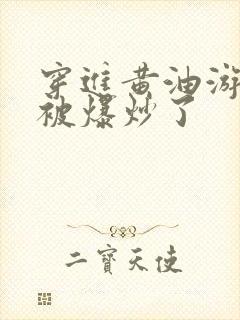 穿進黃油游
被爆炒了
二寶天使